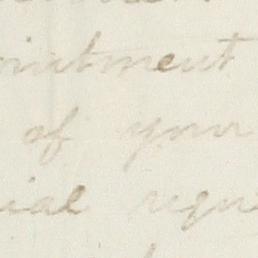 ointment
of your
ial requ